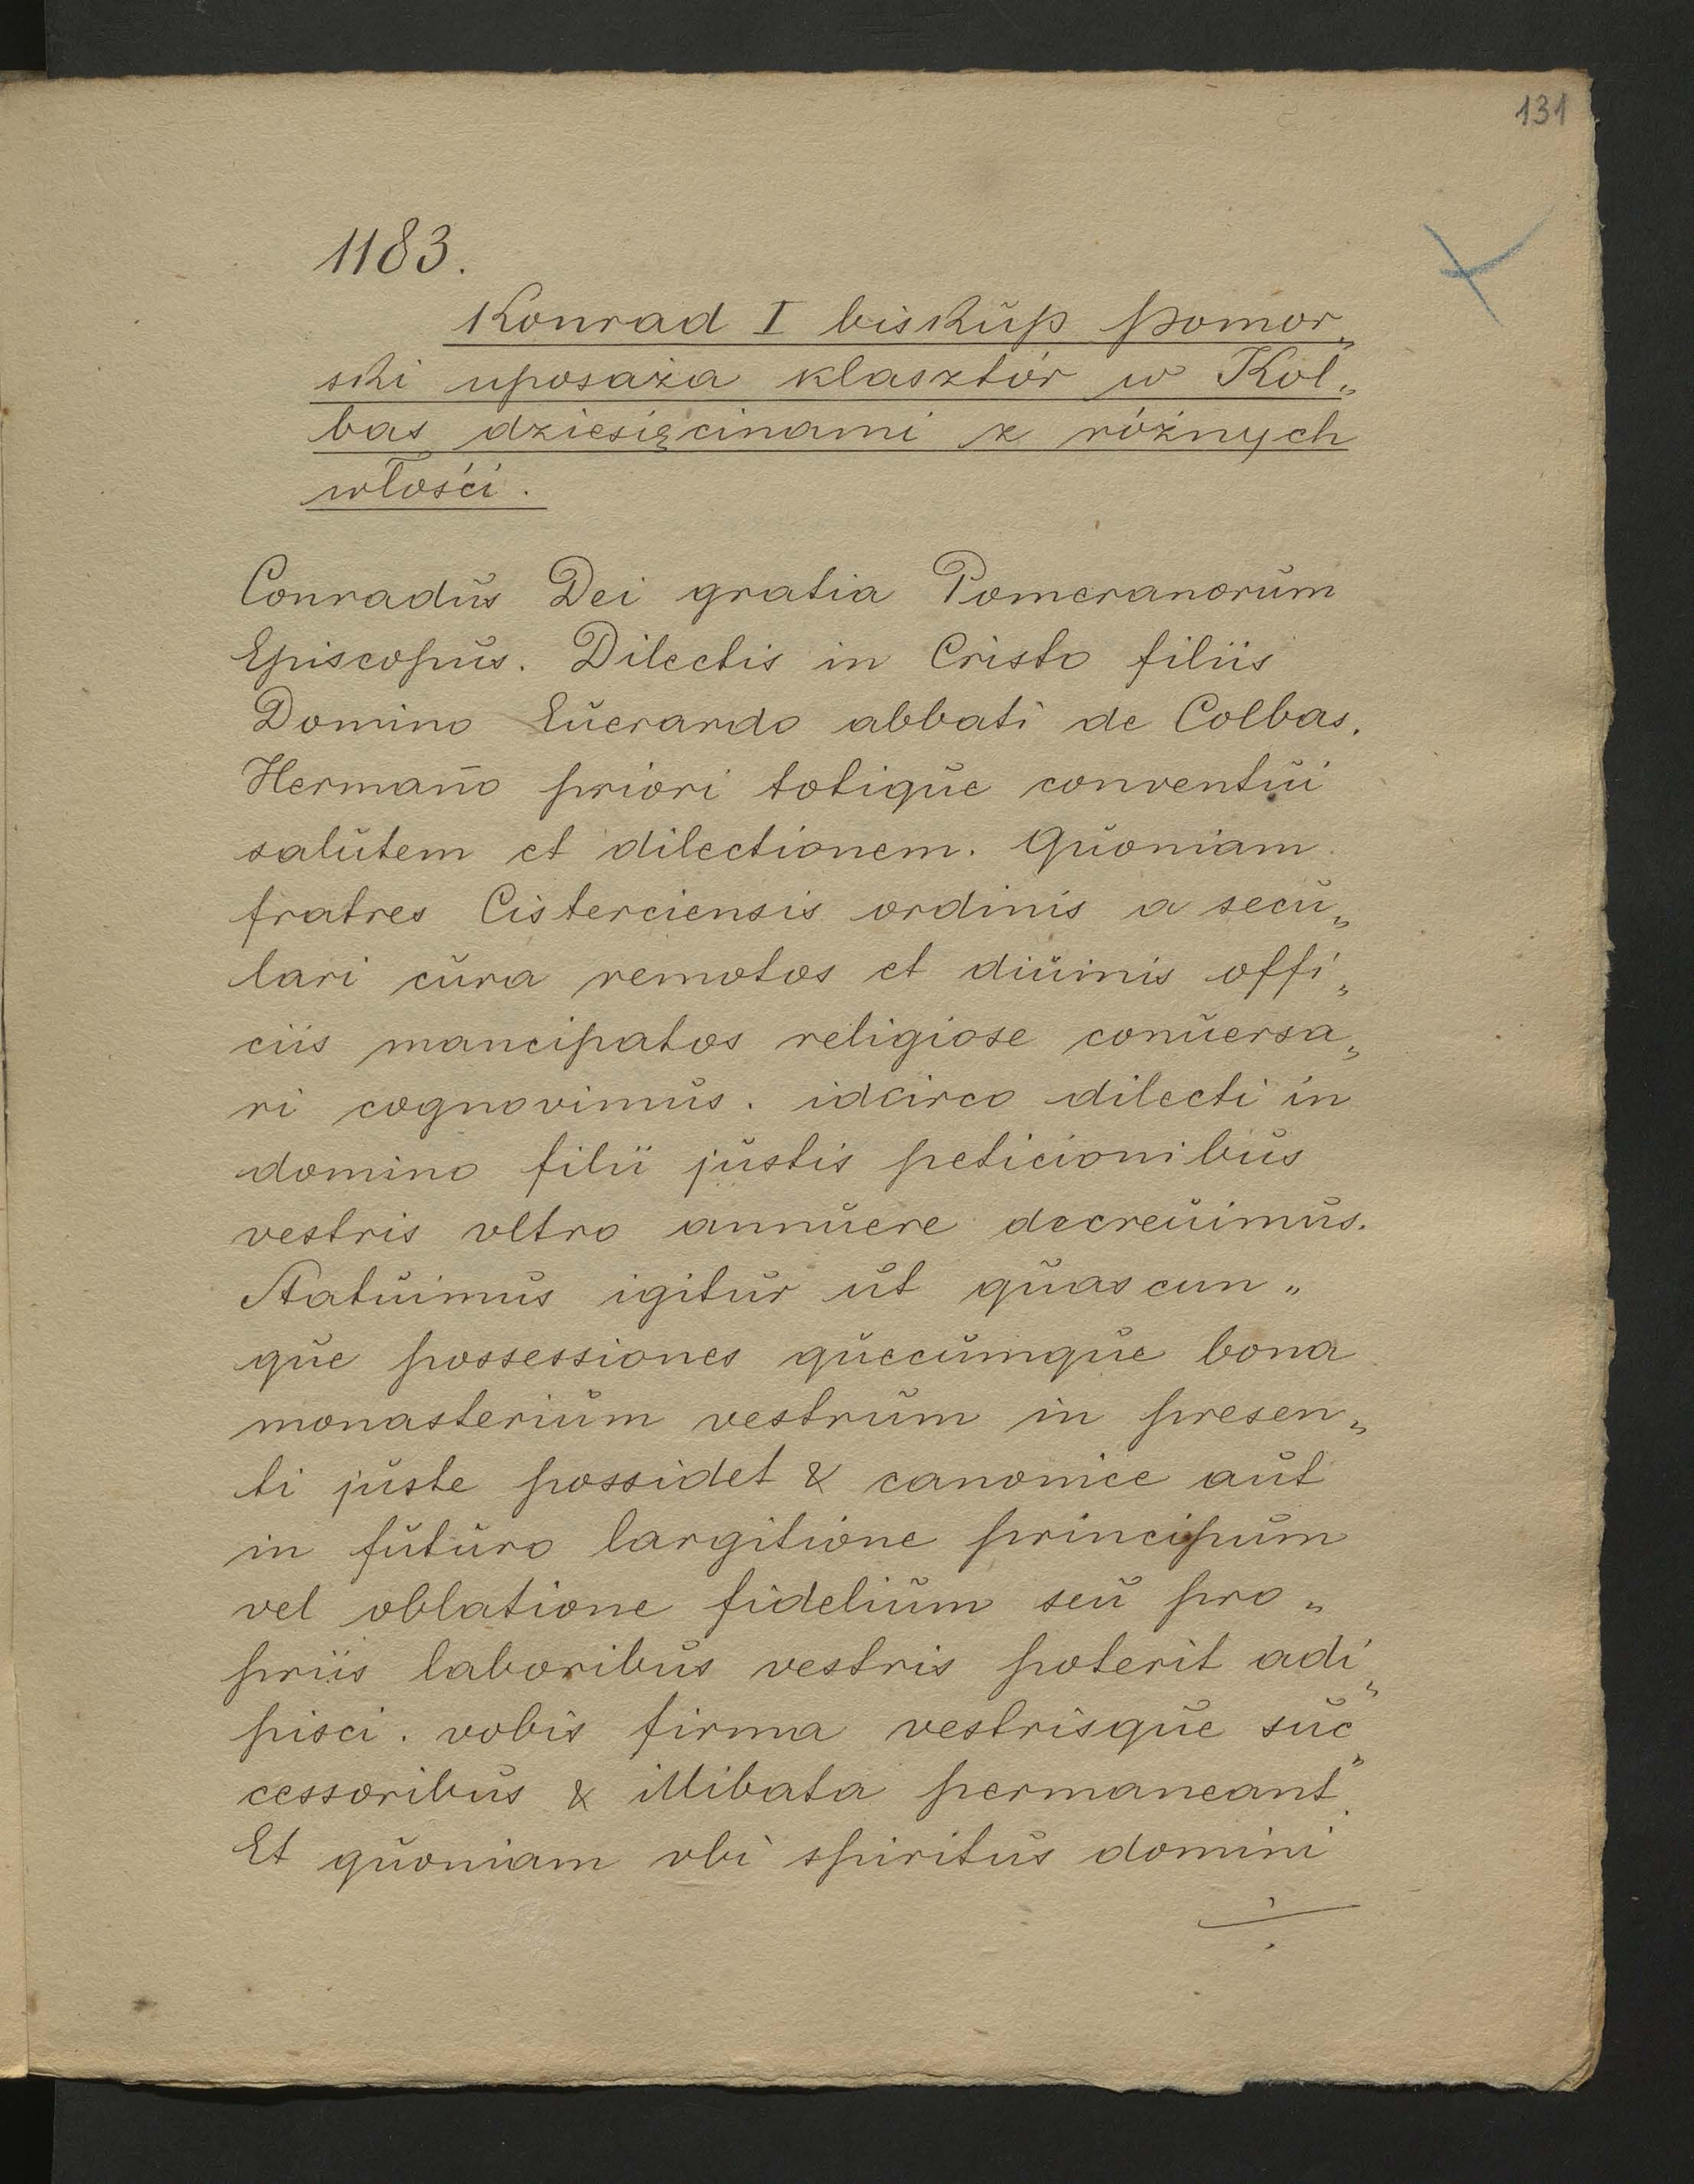 131
1183.
Konrad I biskup pomor„
ski uposaża klasztór w Kol„
bas dziesięcinami z różnych
włości.
Conradus Dei gratia Pomeranorum
Episcopus. Dilectis in Cristo filiis
Domino Euerardo abbati de Colbas.
Hermaño priori totique conventui
salutem et dilectionem. Quoniam
fratres Cisterciensis ordinis a secu„
lari cura remotos et diuinis offi„
ciis mancipatos religiose conuersa„
ri cognovimus. idcirco dilecti in
domino filii justis peticionibus
vestris vltro annuere decreuimus.
Statuimus igitur ut quascun„
que possessiones quecumque bona
monasterium vestrum in presen„
ti juste possidet & canonice aut
in futuro largitione principum
vel oblatione fidelium seu pro„
priis laboribus vestris poterit adi„
pisci. vobis firma vestrisque suc„
cessoribus & illibata permaneant.
Et quoniam vbi spiritus domini